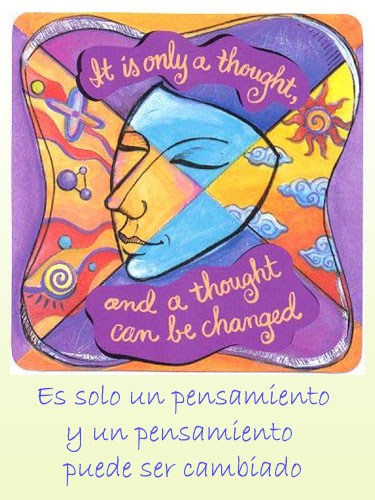 It is only a thought,
and a thought
can be changed
Es solo un pensamiento
y un pensamiento
puede ser cambiado